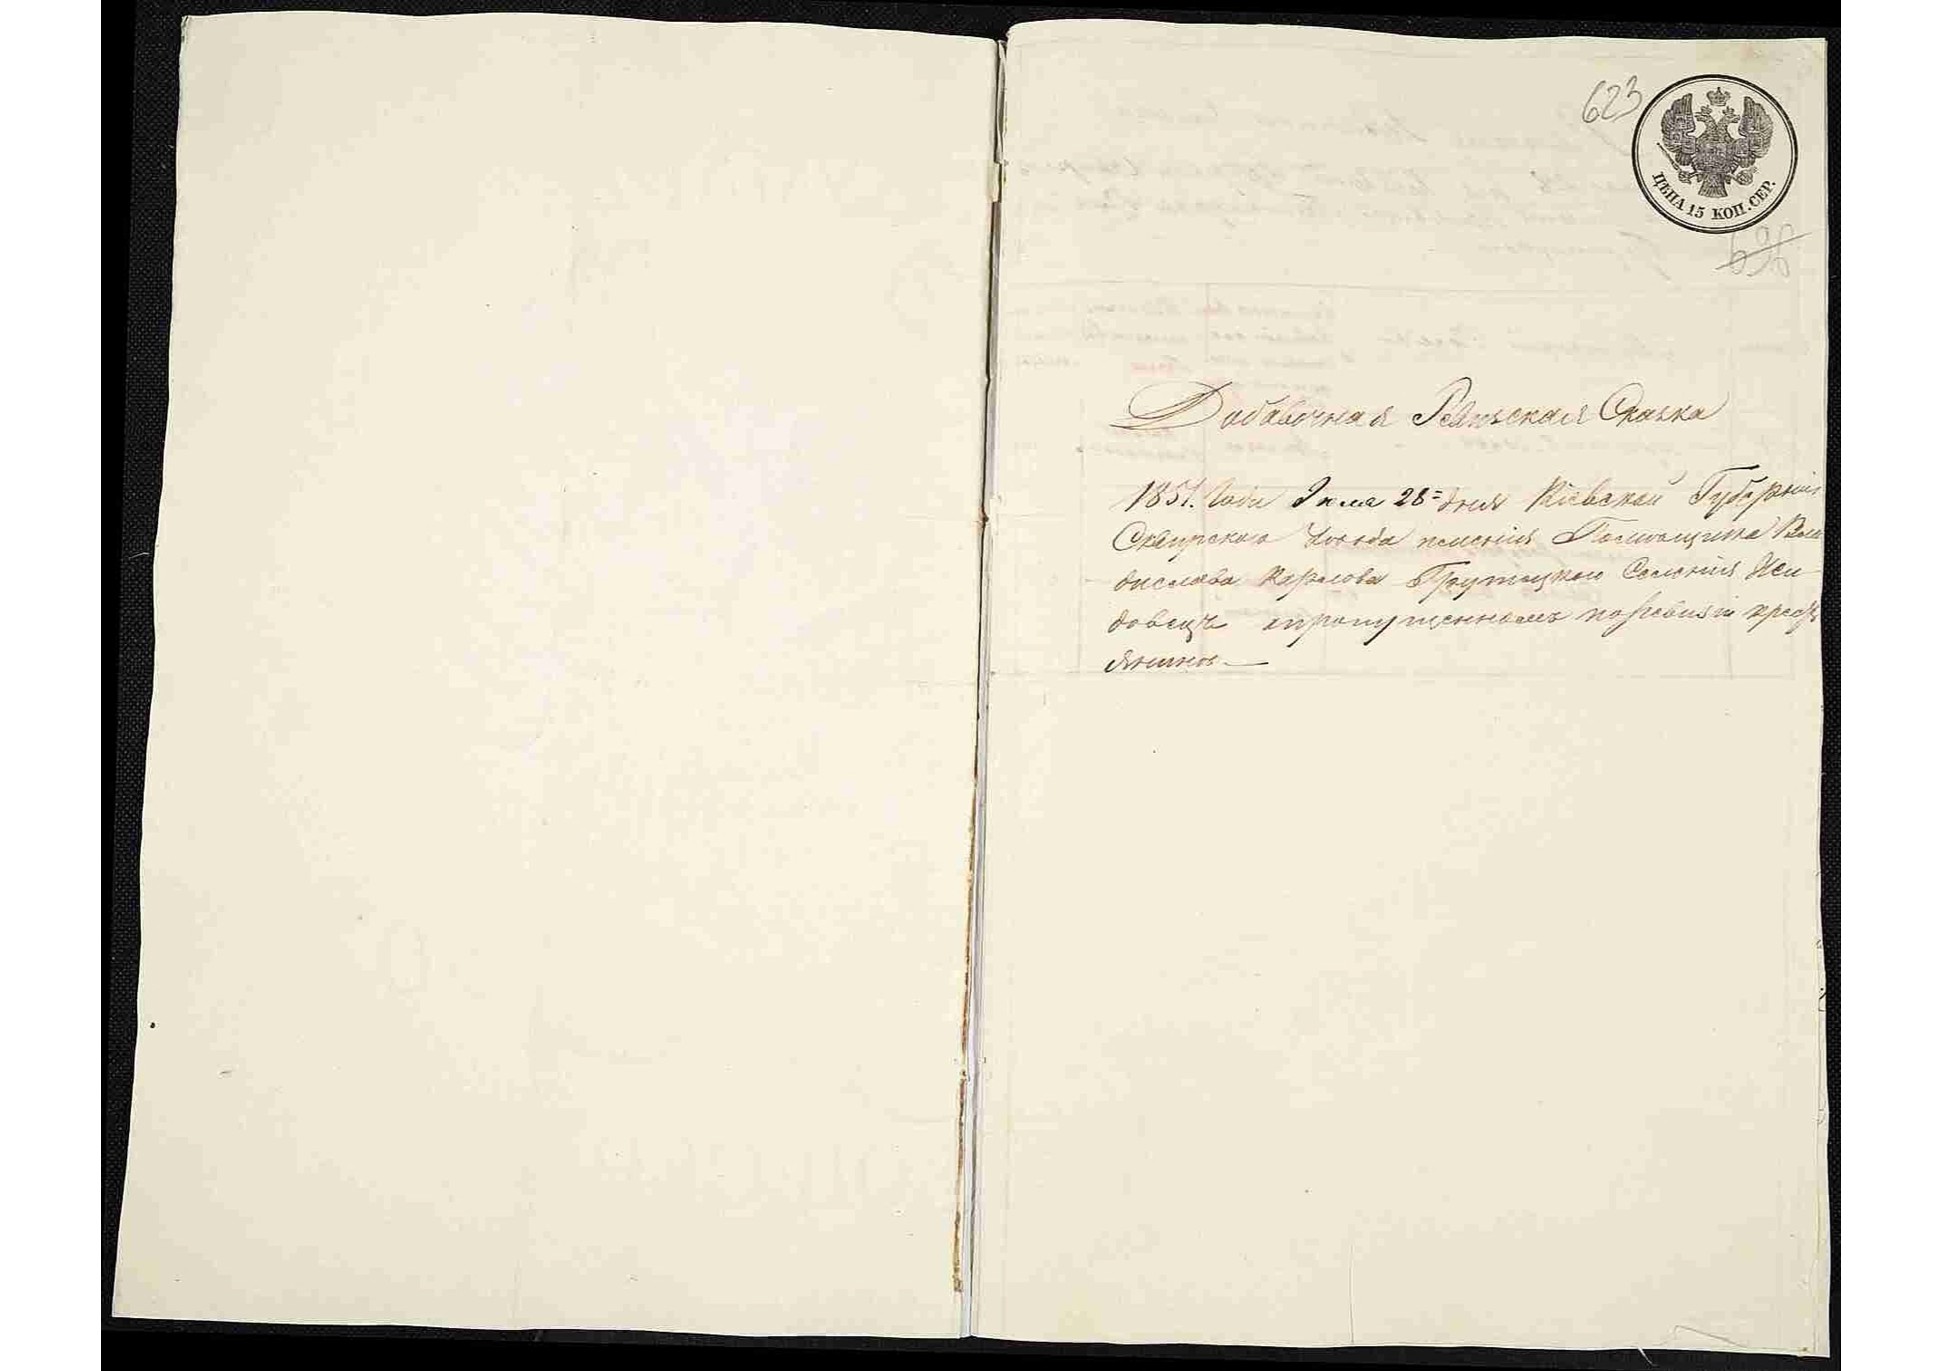 623
ЦѢНА 15 КОП. СЕР.
Добавочная Ревизская Сказка
1851. Года Іюля 28 = дня Кіевской Губерніи
Сквирскаго Уѣзда имѣнія Помѣщика Вла
дислава Карлова селенія
опропущенномъ поревизіи кресть
янинѣ.—